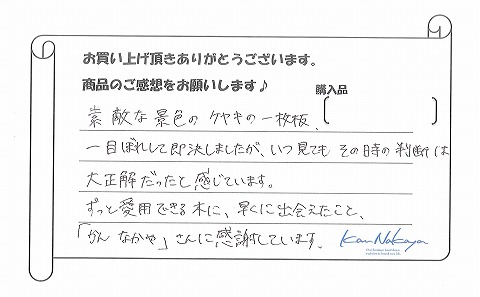 お買い上げ頂きありがとうございます。
商品のご感想をお願いします♪
購入品
素敵な景色のケヤキの一枚板、
一目ぼれして即決しましたが、いつ見ても その時の判断は
大正解だったと感じています。
ずっと愛用できる木に、早くに出会えたこと、
「かん なかや」さんに感謝しています。
Kan Nakaya